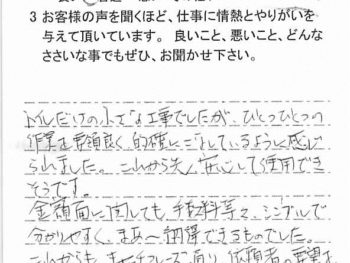 3 お客様の声を聞くほど、仕事に情熱とやりがいを
与えて頂いています。良いこと、悪いこと、どんな
ささいな事でもぜひ、お聞かせ下さい。
トイレだけの小さな工事でしたが、ひとつひとつの
作業を要領良く、的確にこなしているように感じ
られました。これから先、安心して使用でき
そうです。
金額面に関しても、手数料等々、シンプルで
分かりやすく、まあ〜納得できるものでした。
これからも、キャッチフレーズ 依頼者の要望を